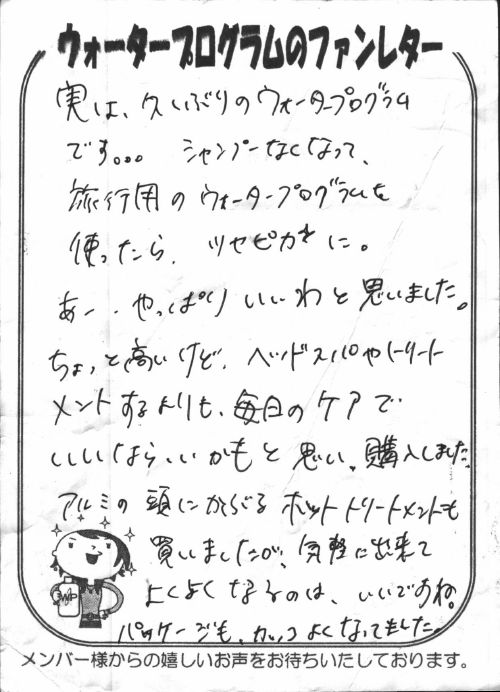 ウォータープログラムのファンレター
実は、久しぶりのウォータープログラム
です。。。 シャンプーなくなって、
旅行用のウォータープログラムを
使ったら、ツヤピカに。
あー、やっぱりいいわと思いました。
ちょっと高いけど、ヘッドスパやトリート
メントするよりも、毎日のケアで
いいなら、いいかもと思い、購入しました。
アルミの頭にかぶるホットトリートメントも
買いましたが、気軽に出来て
よくよくなるのは、いいですね。
パッケージも、カッコよくなってました。
WP
メンバー様からの嬉しいお声をお待ちいたしております。